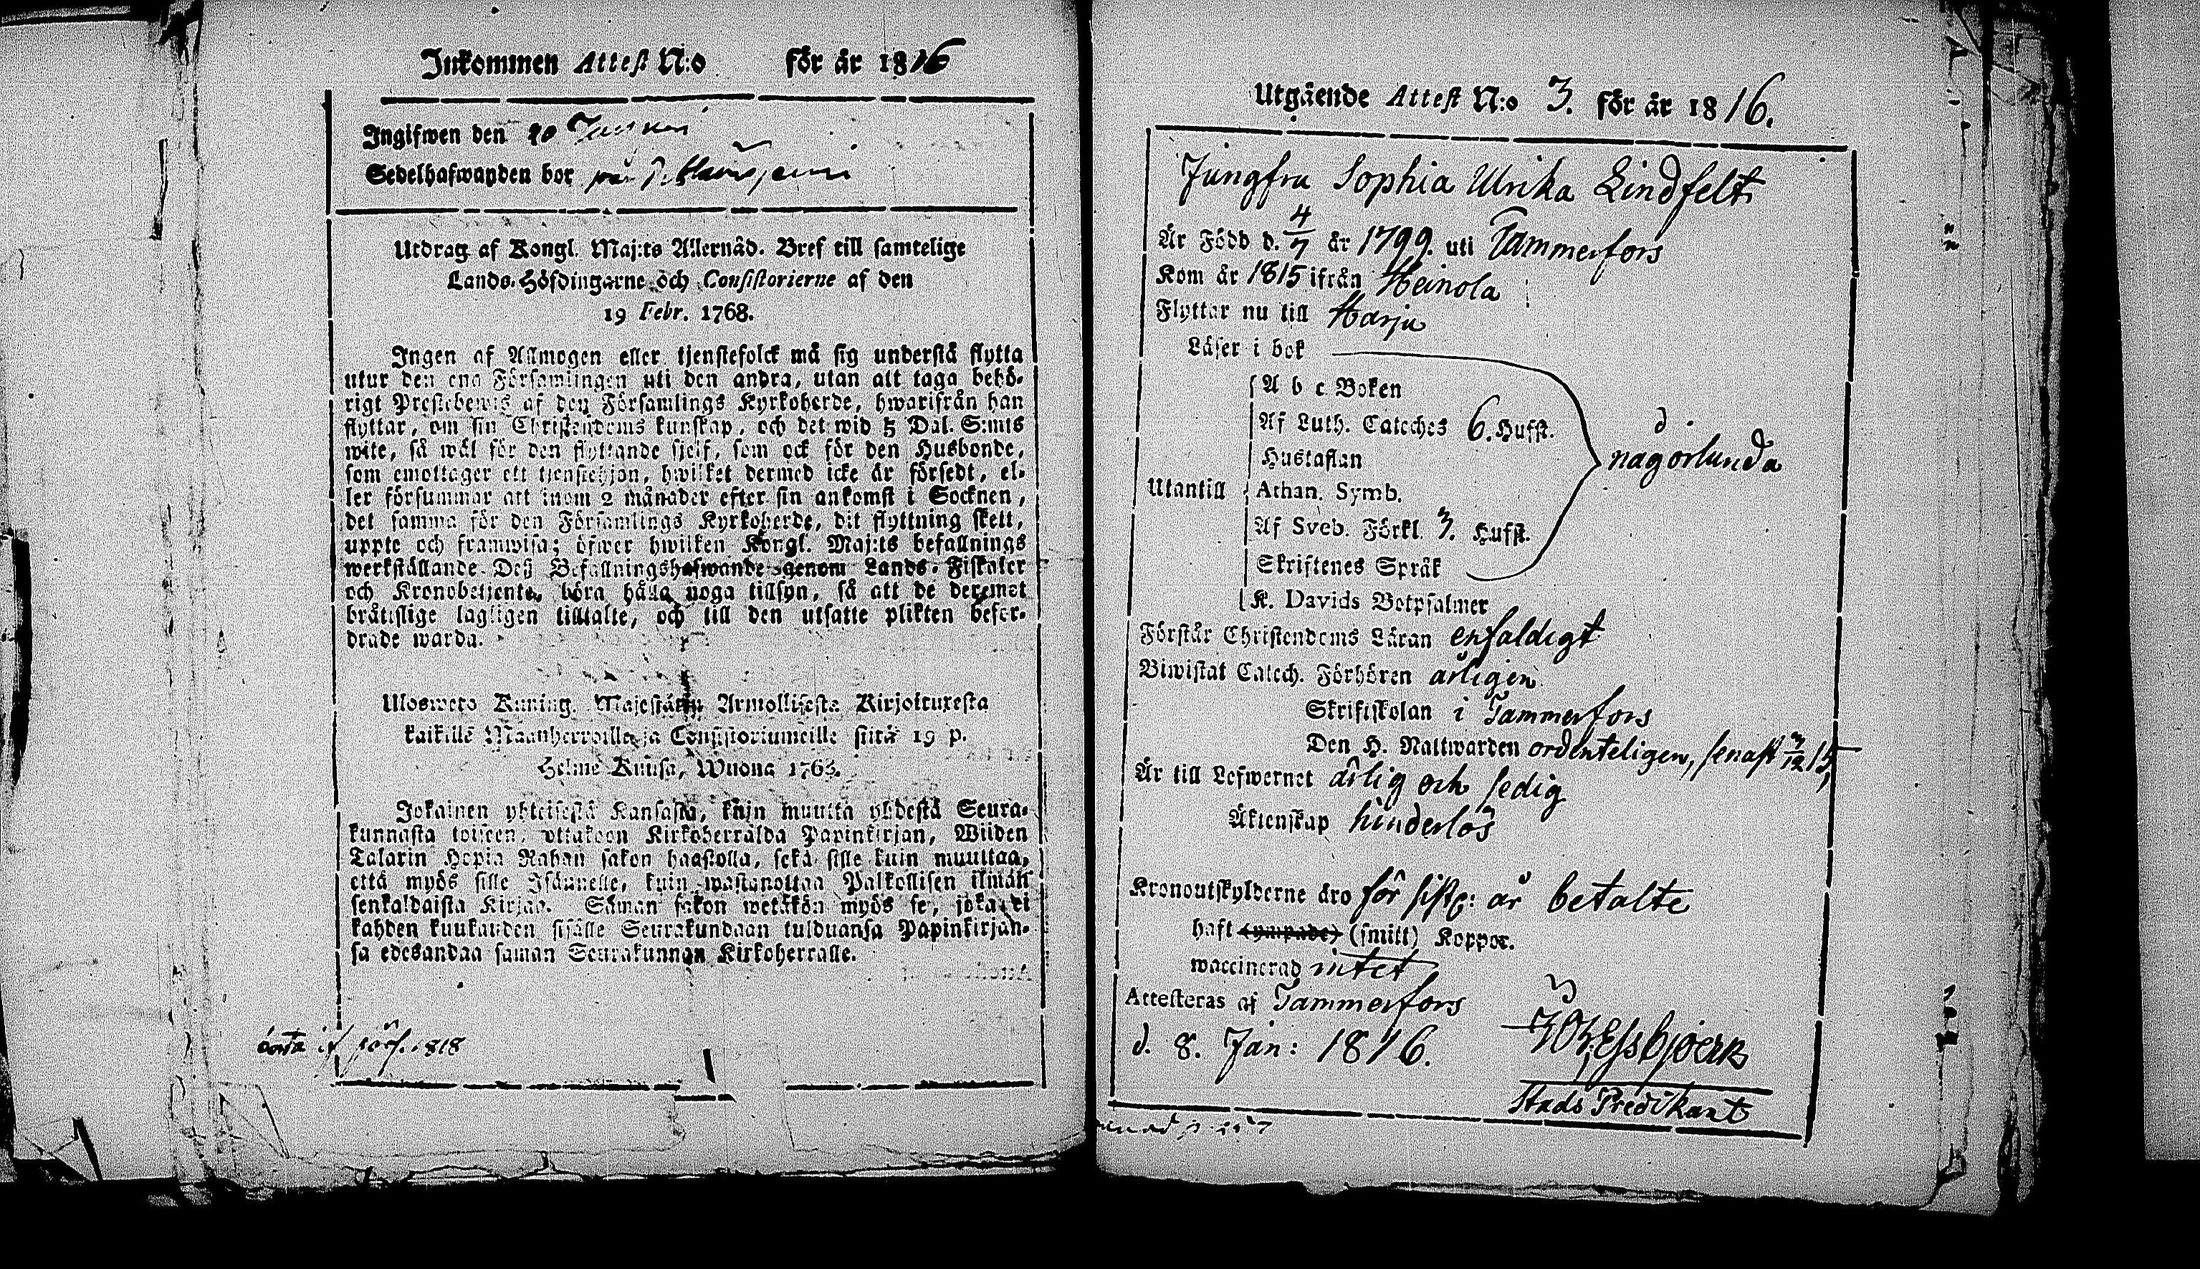 Inkommen Attest N:o för år 1816
Ingifwen den 20
Sedelhafwanden bor
Utdrag af Kongl. Maj:ts Allernåd. Bref till samtelige
Lands-Höfdingarne och Consistorierne af den
19 Febr. 1768.
Ingen af Allmogen eller tjenstefolck må sig understå flytta
utur den ena Församlingen uti den andra, utan att taga behö-
rigt Prestebewis af den Församlings Kyrkoherde, hwarifrån han
flyttar, om sin Christendoms kunskap, och det wid 5 Dal. S:mts
wite, så wäl för den flyttande sjelf, som ock för den Husbonde,
som emottager ett tjenstehjon, hwilket dermed icke är försedt, el-
ler försummar att inom 2 månader efter sin ankomst i Socknen,
det samma för den Församlings Kyrkoherde, dit flyttning skett,
uppte och framwisa; öfwer hwilken Kongl. Maj:ts befallnings
werkställande Dess Befallningshafwande genom Lands-Fiskaler
och Kronobetjente, böra hålla noga tillsyn, så att de deremot
bråtslige lagligen tilltalte, och till den utsatte plikten befor-
drade warda.
Ulosweto Kuning. Majestätin Armollisesta Kirjoituxesta
kaikille Maanherroille ja Consistoriumeille siitä 19 p.
Helme Kuusa, Wuona 1768.
Jokainen yhteisestä Kansasta, kuin muutta yhdestä Seura-
kunnasta toiseen, ottakoon Kirkoherralda Papinkirjan, Wiiden
Talarin Hopia Rahan sakon haastolla, sekä sille kuin muuttaa,
että myös sille Isännelle, kuin wastanottaa Palkollisen ilman
senkaldaista Kirjaa. Saman sakon wetäkön myös se, joka ei
kahden kuukauden sisälle Seurakundaan tulduansa Papinkirjan-
sa edesandaa saman Seurakunnan Kirkoherralle.
1818
Utgående Attest N:o 3. för år 1816.
Jungfru Sophia Ulrika Lindfelt
Är Född d. 4/7 år 1799. uti Tammerfors
Kom år 1815 ifrån Heinola
Flyttar nu till Harju
Läser i bok
A b c Boken
Af Luth. Cateches 6. Hufst.
någorlunda
Hustaflan
Utantill Athan. Symb.
Af Sveb. Förkl 3. Hufst.
Skriftenes Språk
K. Davids Botpsalmer
Förstår Christendoms Läran enfaldigt
Biwistat Catech. Förhören årligen
Skriftskolan i Tammerfors
Den H. Nattwarden ordenteligen, senast 3/12 15,
Är till Lefwernet ärlig och sedig
Äktenskap hinderlös
Kronoutskylderne äro för sistl: år betalte
haft (ympade) (smitt) Koppor.
waccinerad intet
Attesteras af Tammerfors
d. 8. Jan: 1816.
Stads Predikant